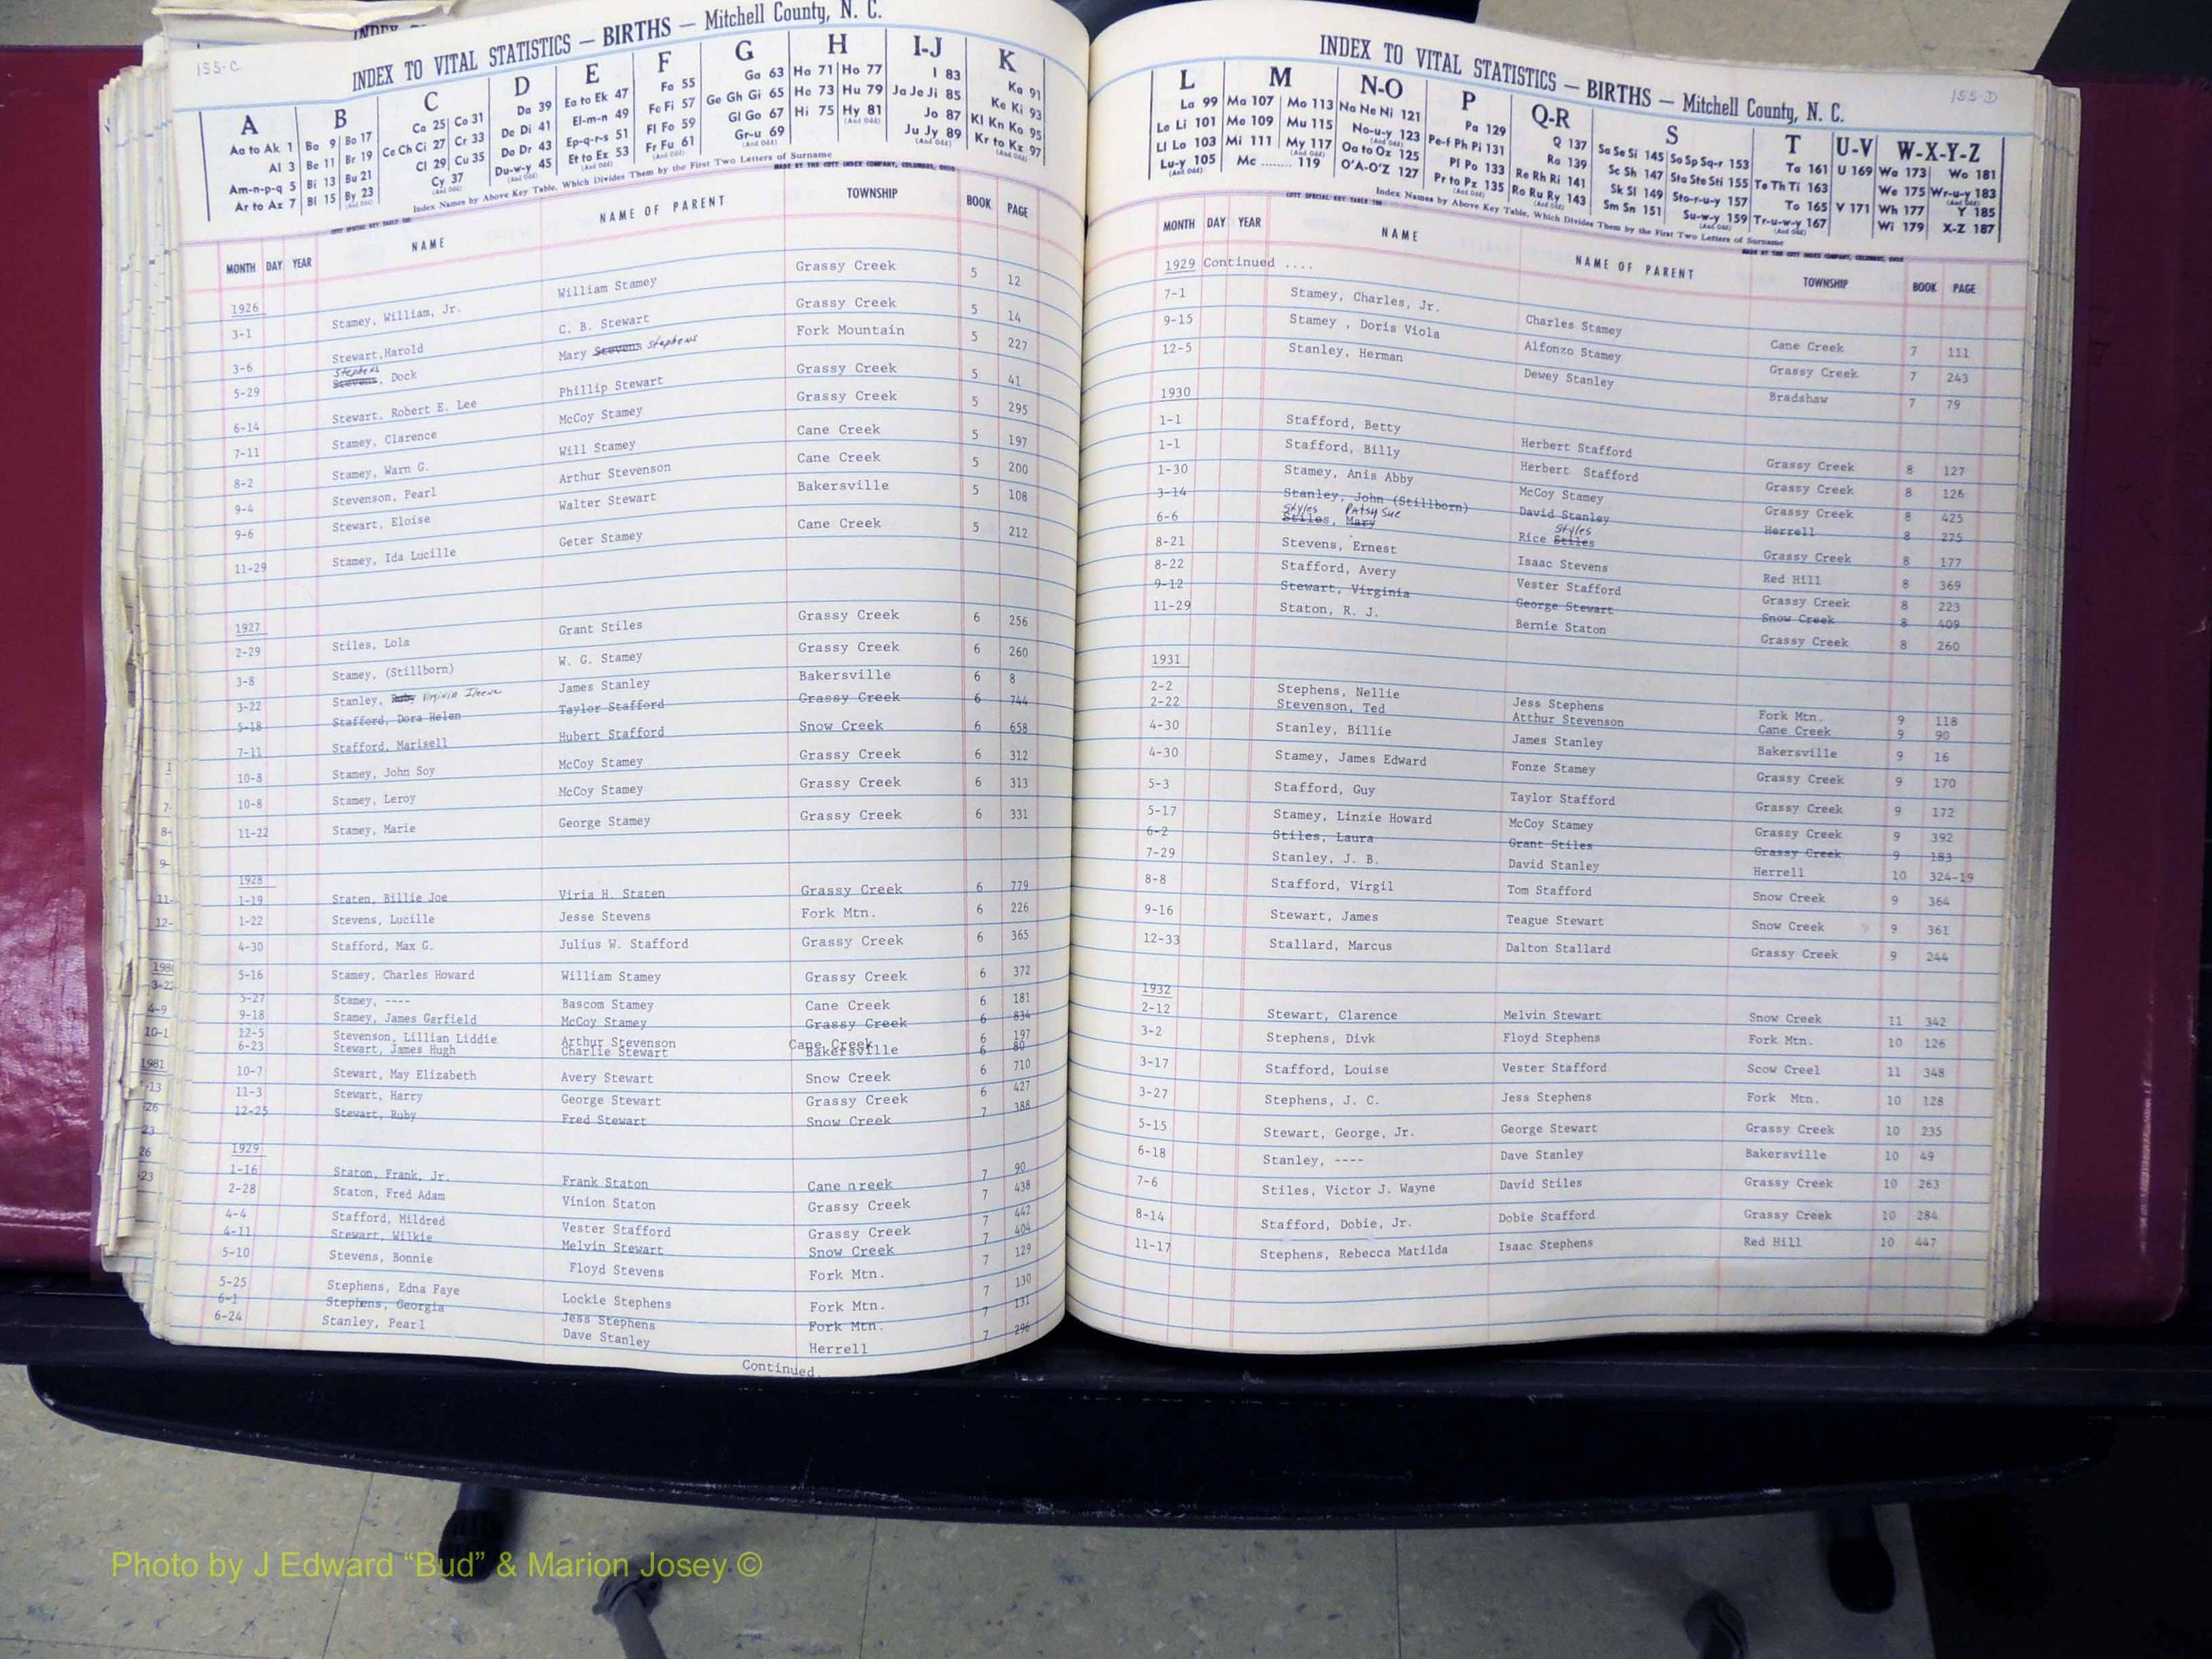 155-C
INDEX TO VITAL STATISTICS — BIRTHS — Mitchell County, N. C.
A B C D E F G H I-J K
Aa to Ak 1 Ba 9 Bo 17 Ca 25 Co 31 Da 39 Ea to Ek 47 Fa 55 Ga 63 Ha 71 Ho 77 I 83 Ka 91
Al 3 Be 11 Br 19 Ce Ch Ci 27 Cr 33 De Di 41 El-m-n 49 Fe Fi 57 Ge Gh Gi 65 He 73 Hu 79 Ja Je Ji 85 Ke Ki 93
Am-n-p-q 5 Bi 13 Bu 21 Cl 29 Cu 35 Do Dr 43 Ep-q-r-s 51 Fl Fo 59 Gl Go 67 Hi 75 Hy 81 (And Odd) Jo 87 Kl Kn Ko 95
Ar to Az 7 Bl 15 By 23 (And Odd) Cy 37 (And Odd) Du-w-y 45 (And Odd) Et to Ez 53 Fr Fu 61 (And Odd) Gr-u 69 (And Odd) Ju Jy 89 (And Odd) Kr to Kz 97
Index Names by Above Key Table, Which Divides Them by the First Two Letters of Surname
MADE BY THE COTT INDEX COMPANY, COLUMBUS, OHIO
MONTH DAY YEAR NAME NAME OF PARENT TOWNSHIP BOOK PAGE
1926
3-1 Stamey, William, Jr. William Stamey Grassy Creek 5 12
3-6 Stewart,Harold C. B. Stewart Grassy Creek 5 14
Stephens
5-29 Stevens, Dock Mary Stevens Stephens Fork Mountain 5 227
6-14 Stewart, Robert E. Lee Phillip Stewart Grassy Creek 5 41
7-11 Stamey, Clarence McCoy Stamey Grassy Creek 5 295
8-2 Stamey, Warn G. Will Stamey Cane Creek 5 197
9-4 Stevenson, Pearl Arthur Stevenson Cane Creek 5 200
9-6 Stewart, Eloise Walter Stewart Bakersville 5 108
11-29 Stamey, Ida Lucille Geter Stamey Cane Creek 5 212
1927
2-29 Stiles, Lola Grant Stiles Grassy Creek 6 256
3-8 Stamey, (Stillborn) W. G. Stamey Grassy Creek 6 260
3-22 Stanley, Ruby Virginia Ileene James Stanley Bakersville 6 8
5-18 Stafford, Dora Helen Taylor Stafford Grassy Creek 6 744
7-11 Stafford, Marisell Hubert Stafford Snow Creek 6 658
10-8 Stamey, John Soy McCoy Stamey Grassy Creek 6 312
10-8 Stamey, Leroy McCoy Stamey Grassy Creek 6 313
11-22 Stamey, Marie George Stamey Grassy Creek 6 331
1928
1-19 Staten, Billie Joe Viria H. Staten Grassy Creek 6 779
1-22 Stevens, Lucille Jesse Stevens Fork Mtn. 6 226
4-30 Stafford, Max G. Julius W. Stafford Grassy Creek 6 365
5-16 Stamey, Charles Howard William Stamey Grassy Creek 6 372
5-27 Stamey, ---- Bascom Stamey Cane Creek 6 181
9-18 Stamey, James Garfield McCoy Stamey Grassy Creek 6 834
12-5 Stevenson, Lillian Liddie Arthur Stevenson Cane Creek 6 197
6-23 Stewart, James Hugh Charlie Stewart Bakersville 6 80
10-7 Stewart, May Elizabeth Avery Stewart Snow Creek 6 710
11-3 Stewart, Harry George Stewart Grassy Creek 6 427
12-25 Stewart, Ruby Fred Stewart Snow Creek 7 388
1929
1-16 Staton, Frank, Jr. Frank Staton Cane nreek 7 90
2-28 Staton, Fred Adam Vinion Staton Grassy Creek 7 438
4-4 Stafford, Mildred Vester Stafford Grassy Creek 7 442
4-11 Stewart, Wilkie Melvin Stewart Snow Creek 7 404
5-10 Stevens, Bonnie Floyd Stevens Fork Mtn. 7 129
5-25 Stephens, Edna Faye Lockie Stephens Fork Mtn. 7 130
6-1 Stephens, Georgia Jess Stephens Fork Mtn. 7 131
6-24 Stanley, Pearl Dave Stanley Herrell 7 296
Continued
155-D
INDEX TO VITAL STATISTICS — BIRTHS — Mitchell County, N. C.
L M N-O P Q-R S T U-V W-X-Y-Z
La 99 Ma 107 Mo 113 Na Ne Ni 121 Pa 129 Q 137 Sa Se Si 145 So Sp Sq-r 153 Ta 161 U 169 Wa 173 Wo 181
Le Li 101 Me 109 Mu 115 No-u-y 123 (And Odd) Pe-f Ph Pi 131 Ra 139 Sc Sh 147 Sta Ste Sti 155 Te Th Ti 163 We 175 Wr-u-y 183 (And Odd)
Ll Lo 103 Mi 111 My 117 (And Odd) Oa to Oz 125 Pl Po 133 Re Rh Ri 141 Sk Sl 149 Sto-r-u-y 157 To 165 V 171 Wh 177 Y 185
Lu-y 105 (And Odd) Mc ........ 119 O'A-O'Z 127 Pr to Pz 135 Ro Ru Ry 143 (And Odd) Sm Sn 151 Su-w-y 159 (And Odd) Tr-u-w-y 167 (And Odd) Wi 179 X-Z 187
Index Names by Above Key Table, Which Divides Them by the First Two Letters of Surname
MADE BY THE COTT INDEX COMPANY, COLUMBUS, OHIO
MONTH DAY YEAR NAME NAME OF PARENT TOWNSHIP BOOK PAGE
1929 Continued ....
7-1 Stamey, Charles, Jr. Charles Stamey Cane Creek 7 111
9-15 Stamey , Doris Viola Alfonzo Stamey Grassy Creek 7 243
12-5 Stanley, Herman Dewey Stanley Bradshaw 7 79
1930
1-1 Stafford, Betty Herbert Stafford Grassy Creek 8 127
1-1 Stafford, Billy Herbert Stafford Grassy Creek 8 126
1-30 Stamey, Anis Abby McCoy Stamey Grassy Creek 8 425
3-14 Stanley, John (Stillborn) David Stanley Herrell 8 275
Styles Patsy Sue Styles
6-6 Stiles, Mary Rice Stiles Grassy Creek 8 177
8-21 Stevens, Ernest Isaac Stevens Red Hill 8 369
8-22 Stafford, Avery Vester Stafford Grassy Creek 8 223
9-12 Stewart, Virginia George Stewart Snow Creek 8 409
11-29 Staton, R. J. Bernie Staton Grassy Creek 8 260
1931
2-2 Stephens, Nellie Jess Stephens Fork Mtn. 9 118
2-22 Stevenson, Ted Atthur Stevenson Cane Creek 9 90
4-30 Stanley, Billie James Stanley Bakersville 9 16
4-30 Stamey, James Edward Fonze Stamey Grassy Creek 9 170
5-3 Stafford, Guy Taylor Stafford Grassy Creek 9 172
5-17 Stamey, Linzie Howard McCoy Stamey Grassy Creek 9 392
6-2 Stiles, Laura Grant Stiles Grassy Creek 9 183
7-29 Stanley, J. B. David Stanley Herrell 10 324-19
8-8 Stafford, Virgil Tom Stafford Snow Creek 9 364
9-16 Stewart, James Teague Stewart Snow Creek 9 361
12-33 Stallard, Marcus Dalton Stallard Grassy Creek 9 244
1932
2-12 Stewart, Clarence Melvin Stewart Snow Creek 11 342
3-2 Stephens, Divk Floyd Stephens Fork Mtn. 10 126
3-17 Stafford, Louise Vester Stafford Scow Creel 11 348
3-27 Stephens, J. C. Jess Stephens Fork Mtn. 10 128
5-15 Stewart, George, Jr. George Stewart Grassy Creek 10 235
6-18 Stanley, ---- Dave Stanley Bakersville 10 49
7-6 Stiles, Victor J. Wayne David Stiles Grassy Creek 10 263
8-14 Stafford, Dobie, Jr. Dobie Stafford Grassy Creek 10 284
11-17 Stephens, Rebecca Matilda Isaac Stephens Red Hill 10 447
Photo by J Edward “Bud” & Marion Josey ©